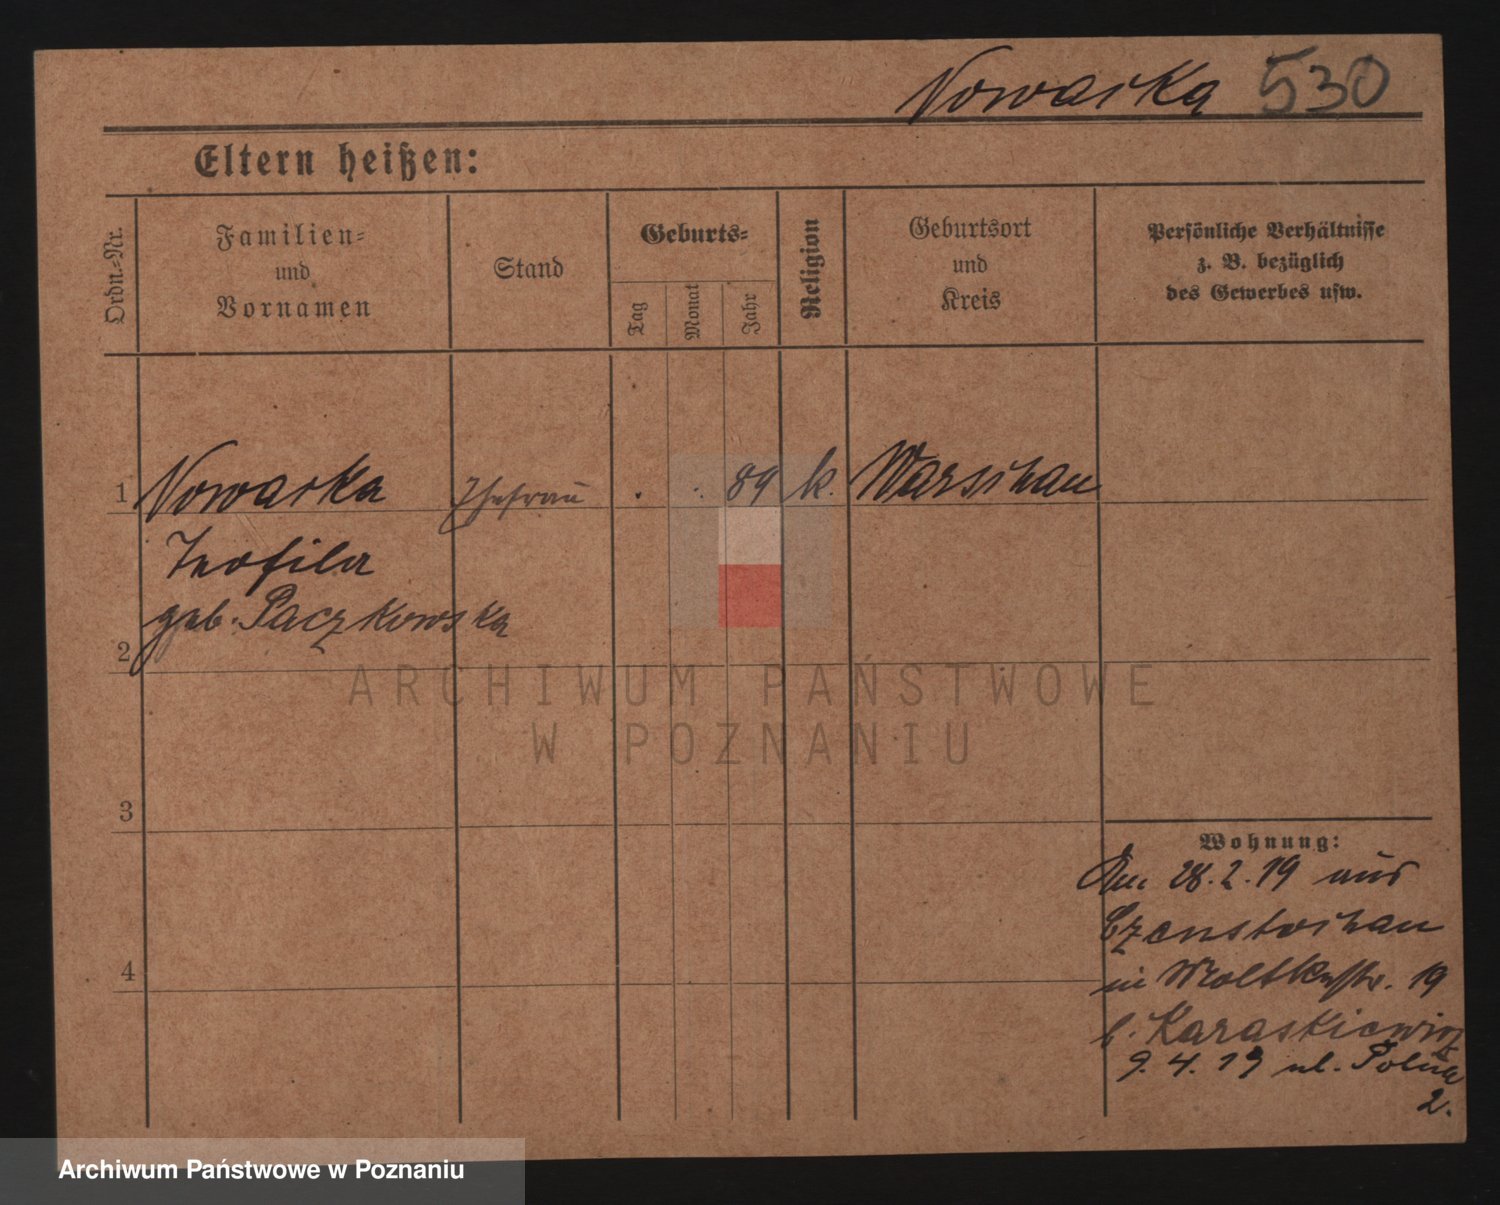 Nowacka 530
Eltern heißen:
Ordn.-Nr.
Familien-
und
Vornamen
Stand
Geburts-
Tag
Monat
Jahr
Religion
Geburtsort
und
Kreis
Persönliche Verhältnisse
z. B. bezüglich
des Gewerbes usw.
1 Nowacka Ehefrau . . 89 k. Warschau
Teofila
geb. Paczkowska
2
ARCHIWUM PAŃSTWOWE
W POZNANIU
3
Wohnung:
Am 28.2.19 aus
Czenstochau
4
in Moltkestr. 19
b. Karaskiewicz
9.4.19 ul. Polna
2.
Archiwum Państwowe w Poznaniu